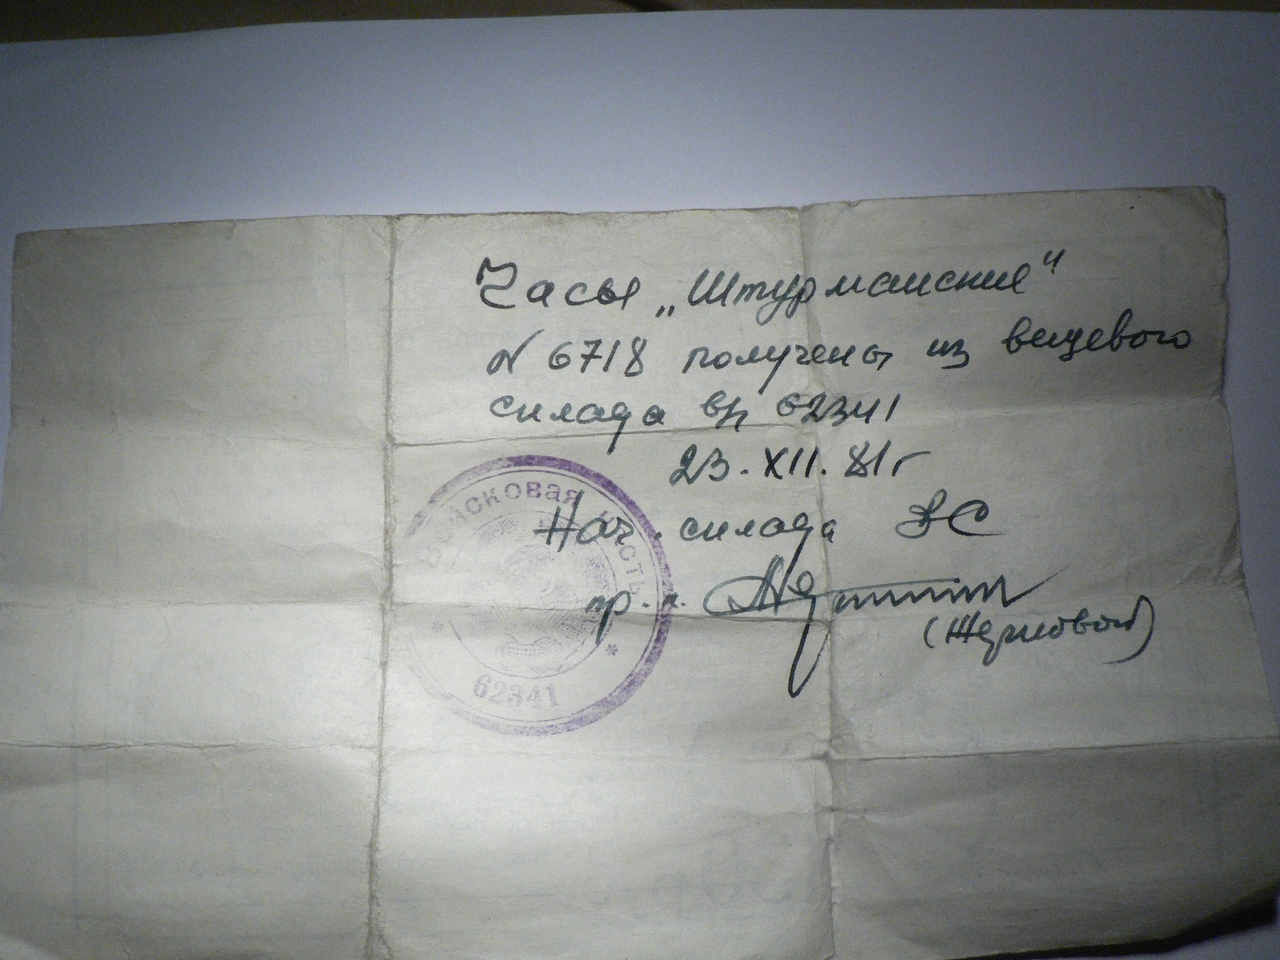 Часы „Штурманские“
N 6718 получены из вещевого
склада в/ч 62341
23.XII.81г
Нач. склада ВС
пр-к.
(Жерновой)
Войсковая часть
* *
62341